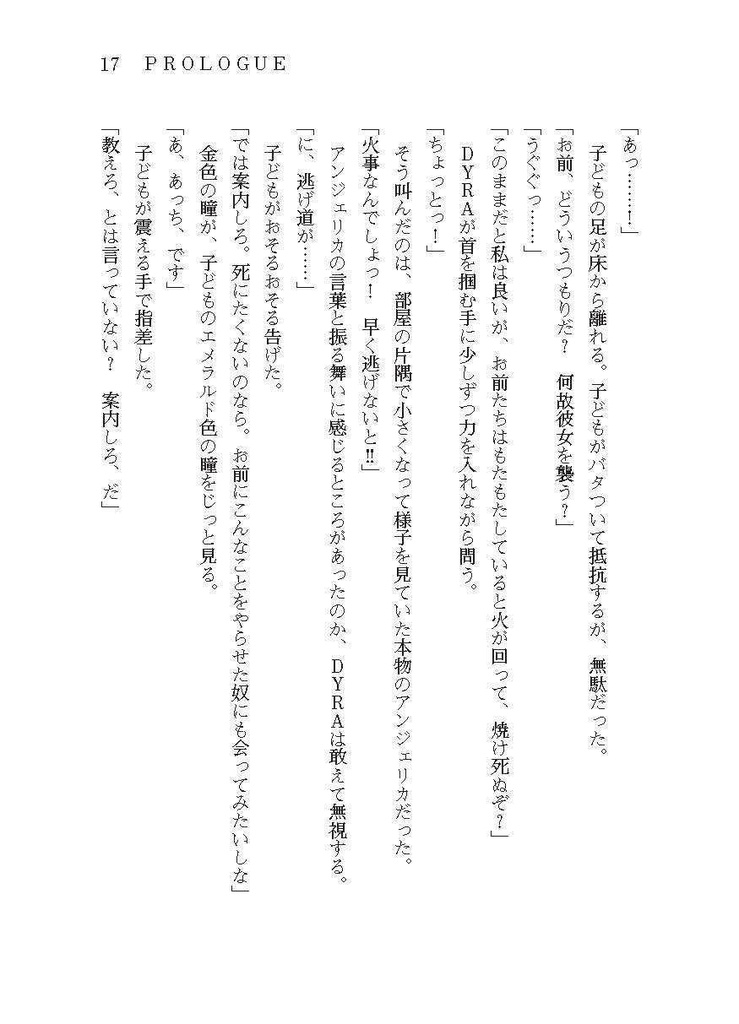 17 PROLOGUE
「あっ……！」
子どもの足が床から離れる。子どもがバタついて抵抗するが、無駄だった。
「お前、どういうつもりだ？　何故彼女を襲う？」
「うぐぐっ……」
「このままだと私は良いが、お前たちはもたもたしていると火が回って、焼け死ぬぞ？」
ＤＹＲＡが首を掴む手に少しずつ力を入れながら問う。
「ちょっとっ！」
そう叫んだのは、部屋の片隅で小さくなって様子を見ていた本物のアンジェリカだった。
「火事なんでしょっ！　早く逃げないと‼」
アンジェリカの言葉と振る舞いに感じるところがあったのか、ＤＹＲＡは敢えて無視する。
「に、逃げ道が……」
子どもがおそるおそる告げた。
「では案内しろ。死にたくないのなら。お前にこんなことをやらせた奴にも会ってみたいしな」
金色の瞳が、子どものエメラルド色の瞳をじっと見る。
「あ、あっち、です」
子どもが震える手で指差した。
「教えろ、とは言っていない？　案内しろ、だ」